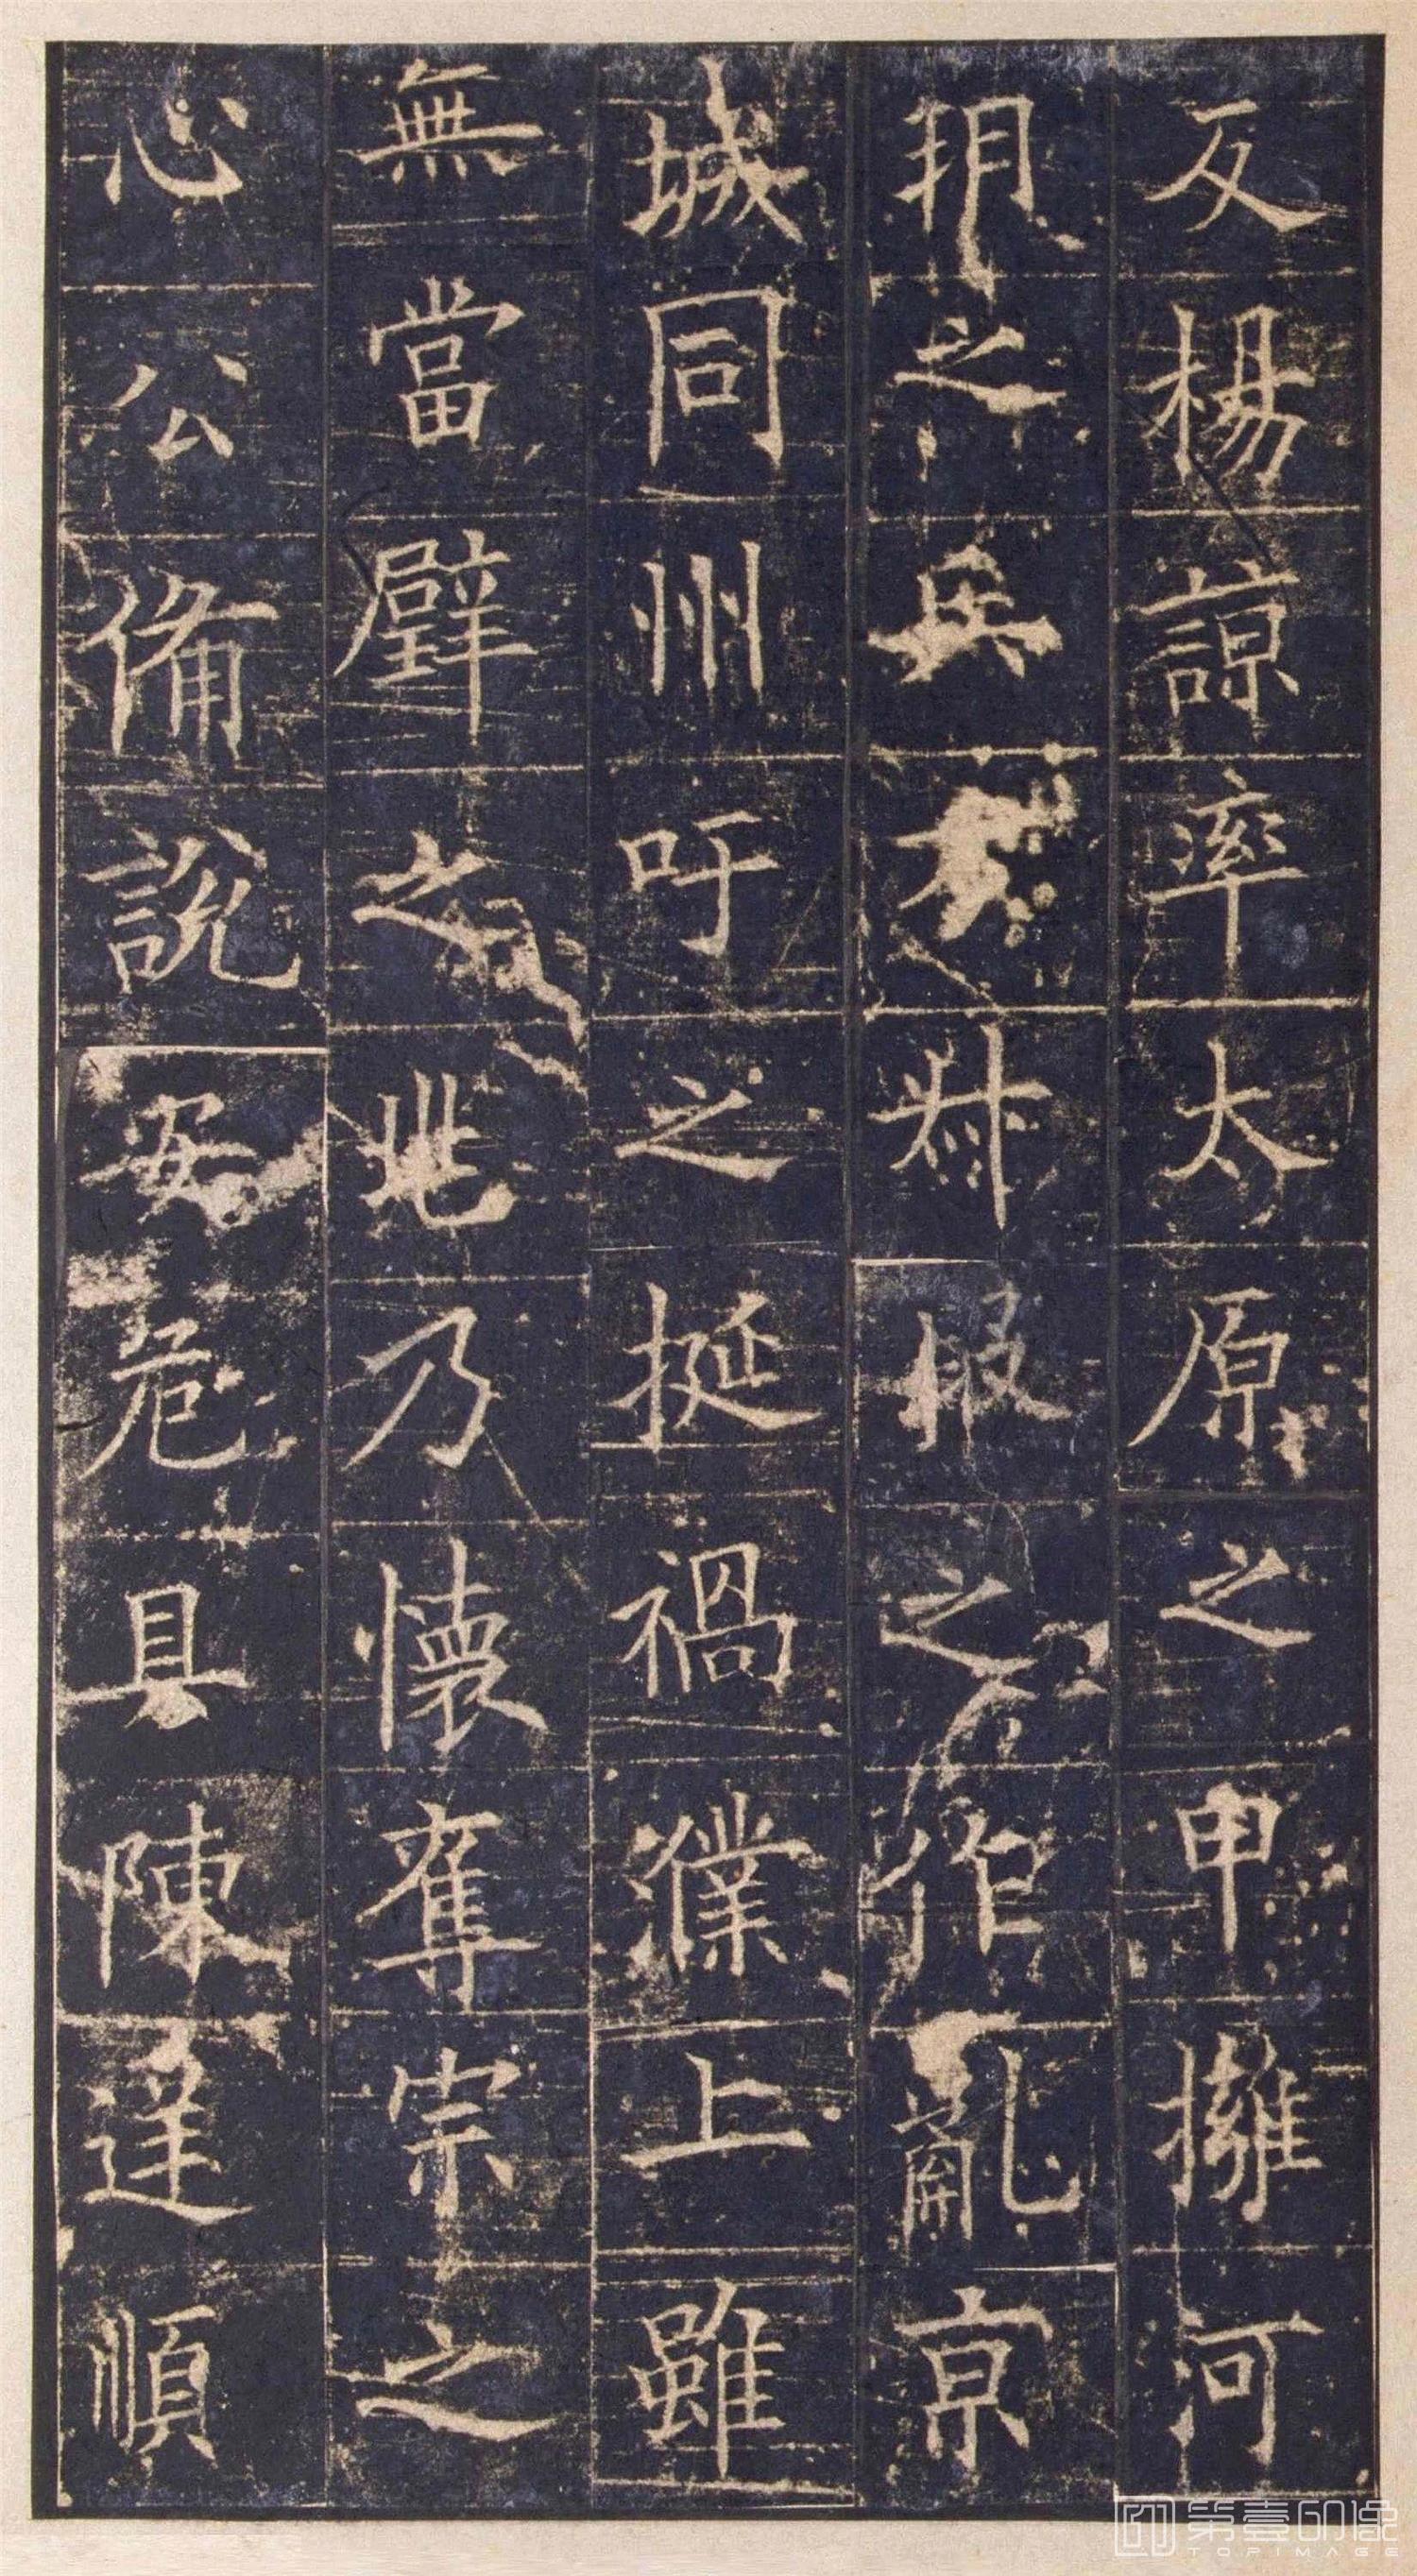 反楊諒率太原之甲擁河
朔之兵方叔段之作亂京
城同州吁之挺禍濮上雖
無當璧之兆乃懷奪宗之
心公備說安危具陳逆順
第壹印像
TOPIMAGE